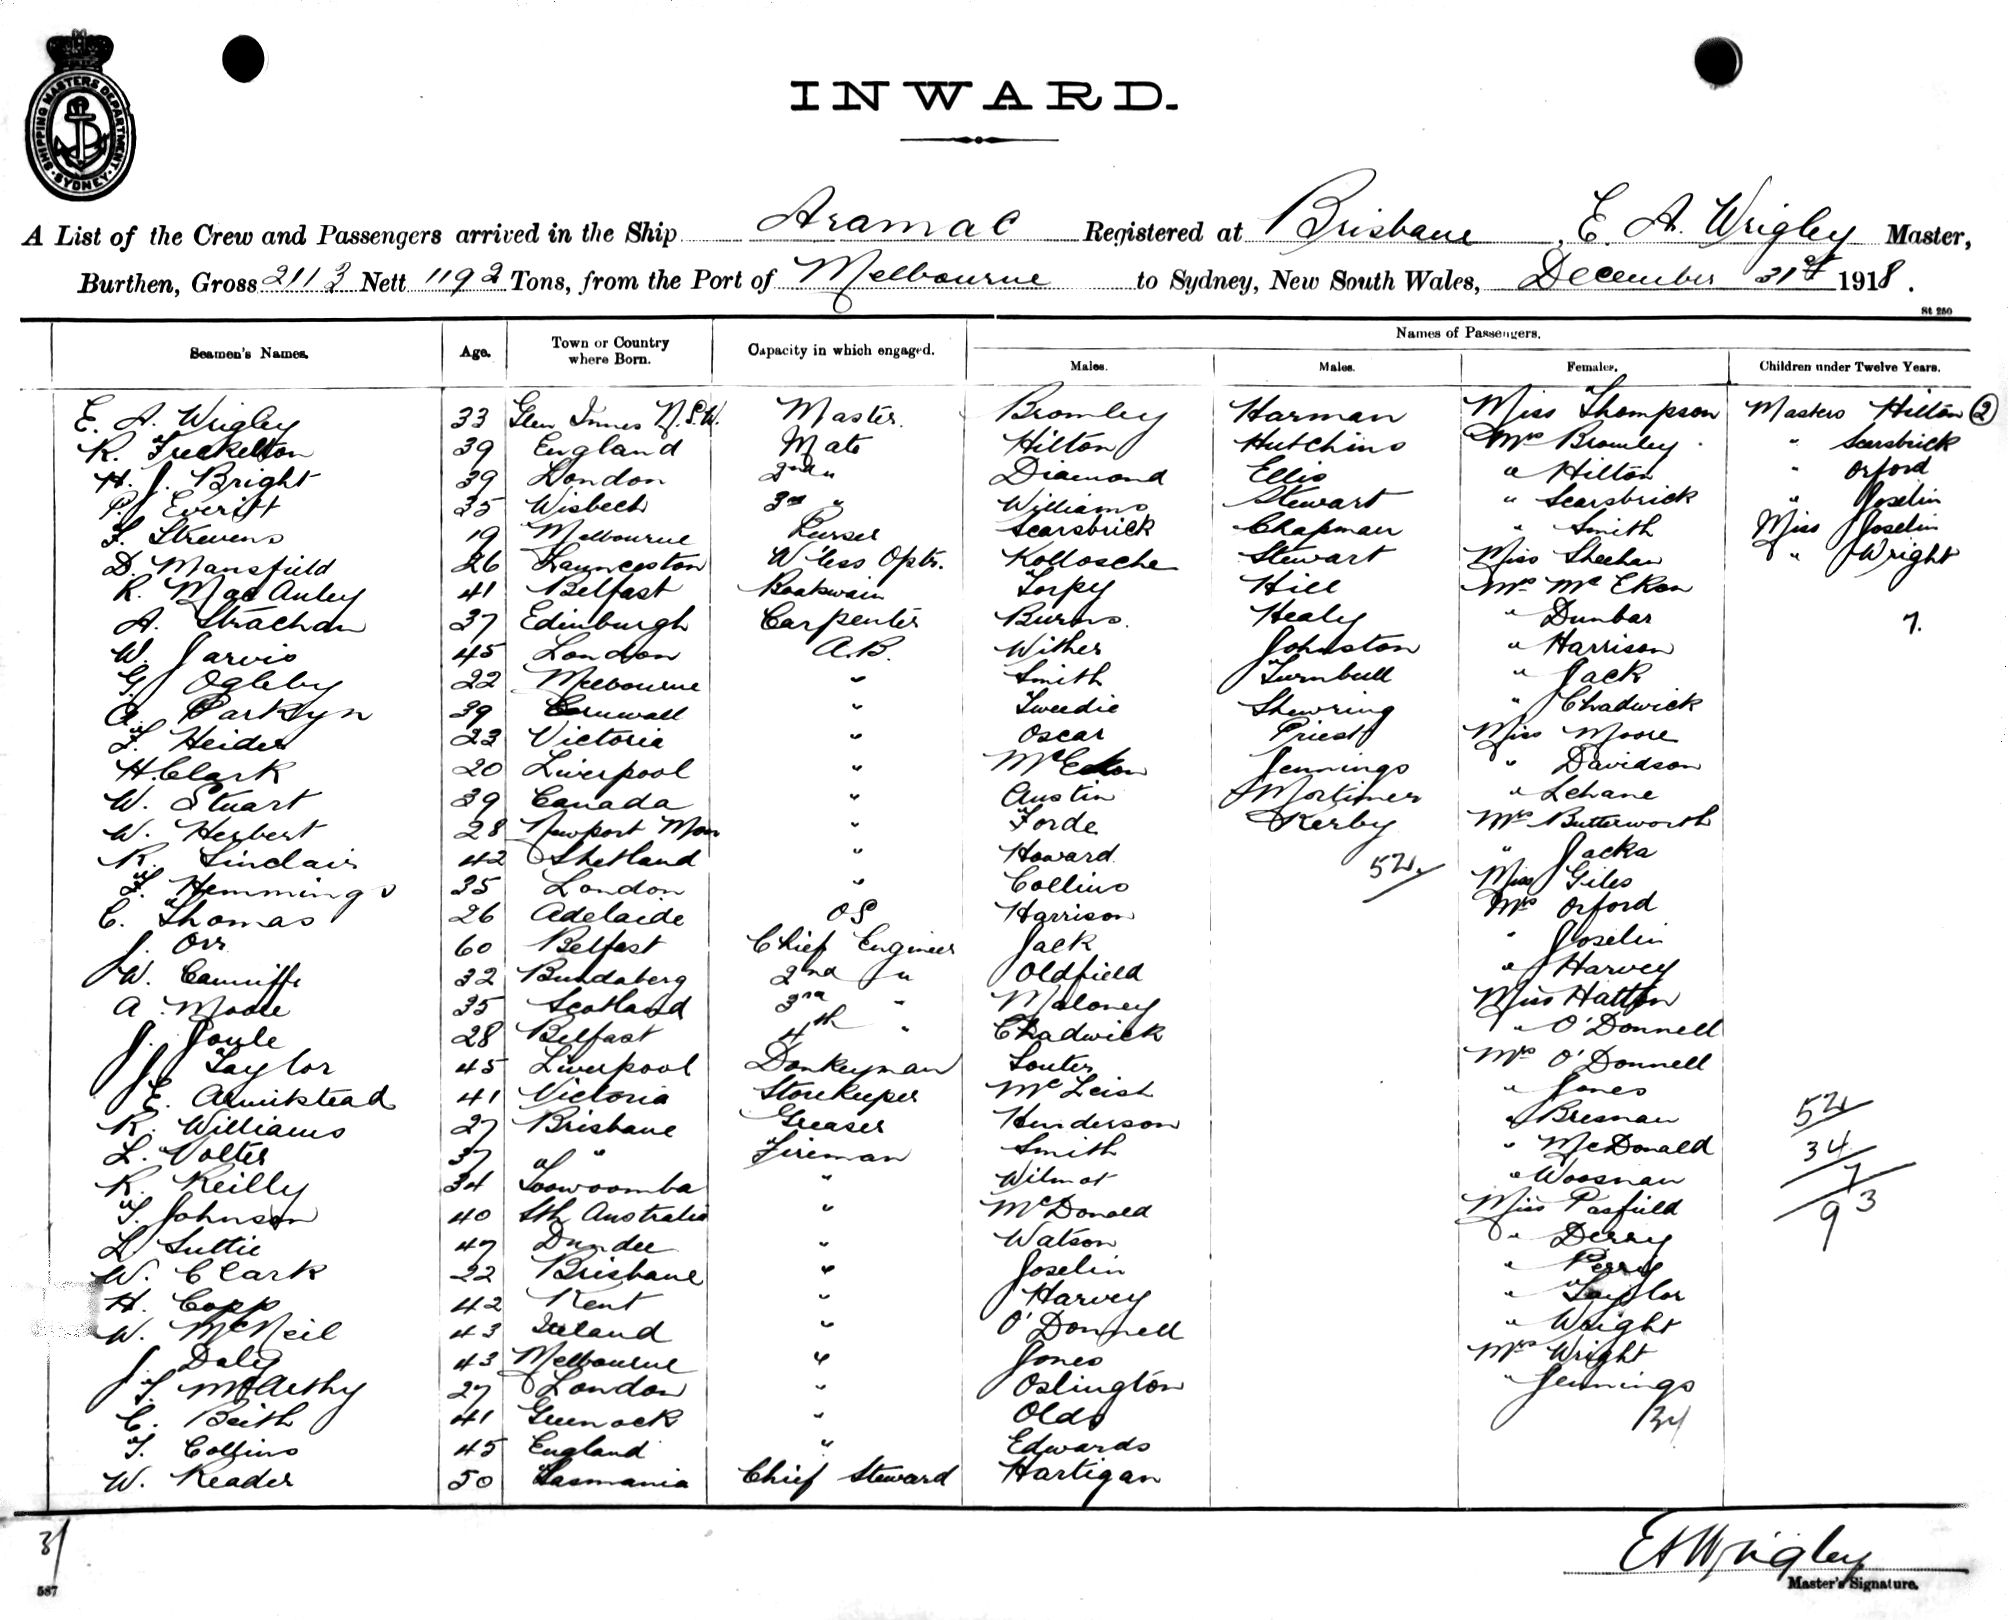 SHIPPING MASTERS DEPARTMENT
SYDNEY
INWARD.
A List of the Crew and Passengers arrived in the Ship Aramac Registered at Brisbane, E. A. Wrigley Master,
Burthen, Gross 2113 Nett 1192 Tons, from the Port of Melbourne to Sydney, New South Wales, December 31st 1918.
St 250
Names of Passengers.
Seamen's Names. Age. Town or Country where Born. Capacity in which engaged. Males. Males. Females. Children under Twelve Years.
E. A. Wrigley 33 Glen Innes N.S.W. Master. Bromley Harman Miss Thompson Masters Hilton (2)
R. Freckelton 39 England Mate Hilton Hutchins Mrs Bromley " Scarsbrick
H. J. Bright 39 London 2nd " Diamond Ellis " Hilton " Orford
P. Everitt 35 Wisbech 3rd " Williams Stewart " Scarsbrick " Joselin
F. Strevens 19 Melbourne Purser Scarsbrick Chapman " Smith Miss Joselin
D. Mansfield 26 Launceston W'less Optr. Kollosche Stewart Miss Sheehan " Wright
R. MacAuley 41 Belfast Boatswain Torpy Hill Mrs McEkon
A. Strachan 37 Edinburgh Carpenter Burns. Healy " Dunbar 7.
W. Jarvis 45 London A.B. Wither Johnston " Harrison
G. Ogleby 22 Melbourne " Smith Turnbull " Jack
A. Parkyn 39 Cornwall " Tweedie Shewring " Chadwick
F. Heider 23 Victoria " Oscar Priest Miss Moore
H. Clark 20 Liverpool " Jennings " Davidson
W. Stuart 39 Canada " Austin Mortimer " Lehane
W. Herbert 28 Newport Mon " Forde Kerby Mrs Butterworth
R. Sinclair 42 Shetland " Howard 52 " Jacka
F. Hemmings 35 London " Collins Miss Giles
C. Thomas 26 Adelaide OS Harrison Mrs Orford
J. Orr 60 Belfast Chief Engineer Jack " Joselin
W. Canniffe 32 Bundaberg 2nd " Oldfield " Harvey
A. Moore 35 Scotland 3rd " Maloney Miss Hatton
J. Joule 28 Belfast 4th " Chadwick " O'Donnell
J. Taylor 45 Liverpool Donkeyman Souter Mrs O'Donnell
E. Armitstead 41 Victoria Storekeeper McLeish " Jones
R. Williams 27 Brisbane Greaser Henderson " Bresnan 52
L. Volter 37 " " Fireman Smith " McDonald 34
R. Reilly 34 Toowoomba " Wilmot " Woosnan 7
T. Johnson 40 Sth Australia " McDonald Miss Pasfield 93
L. Suttie 47 Dundee " Watson " Derry
W. Clark 22 Brisbane " Joselin " Perry
H. Copp 42 Kent " Harvey " Taylor
W. McNeil 43 Ireland " O'Donnell " Wright
J. Daly 43 Melbourne " Jones Mrs Wright
T. McCarthy 27 London " Oslington " Jennings
C. Beith 41 Greenock " Olds 34
T. Collins 45 England " Edwards
W. Reader 50 Tasmania Chief Steward Hartigan
EAWrigley
Master's Signature.
587